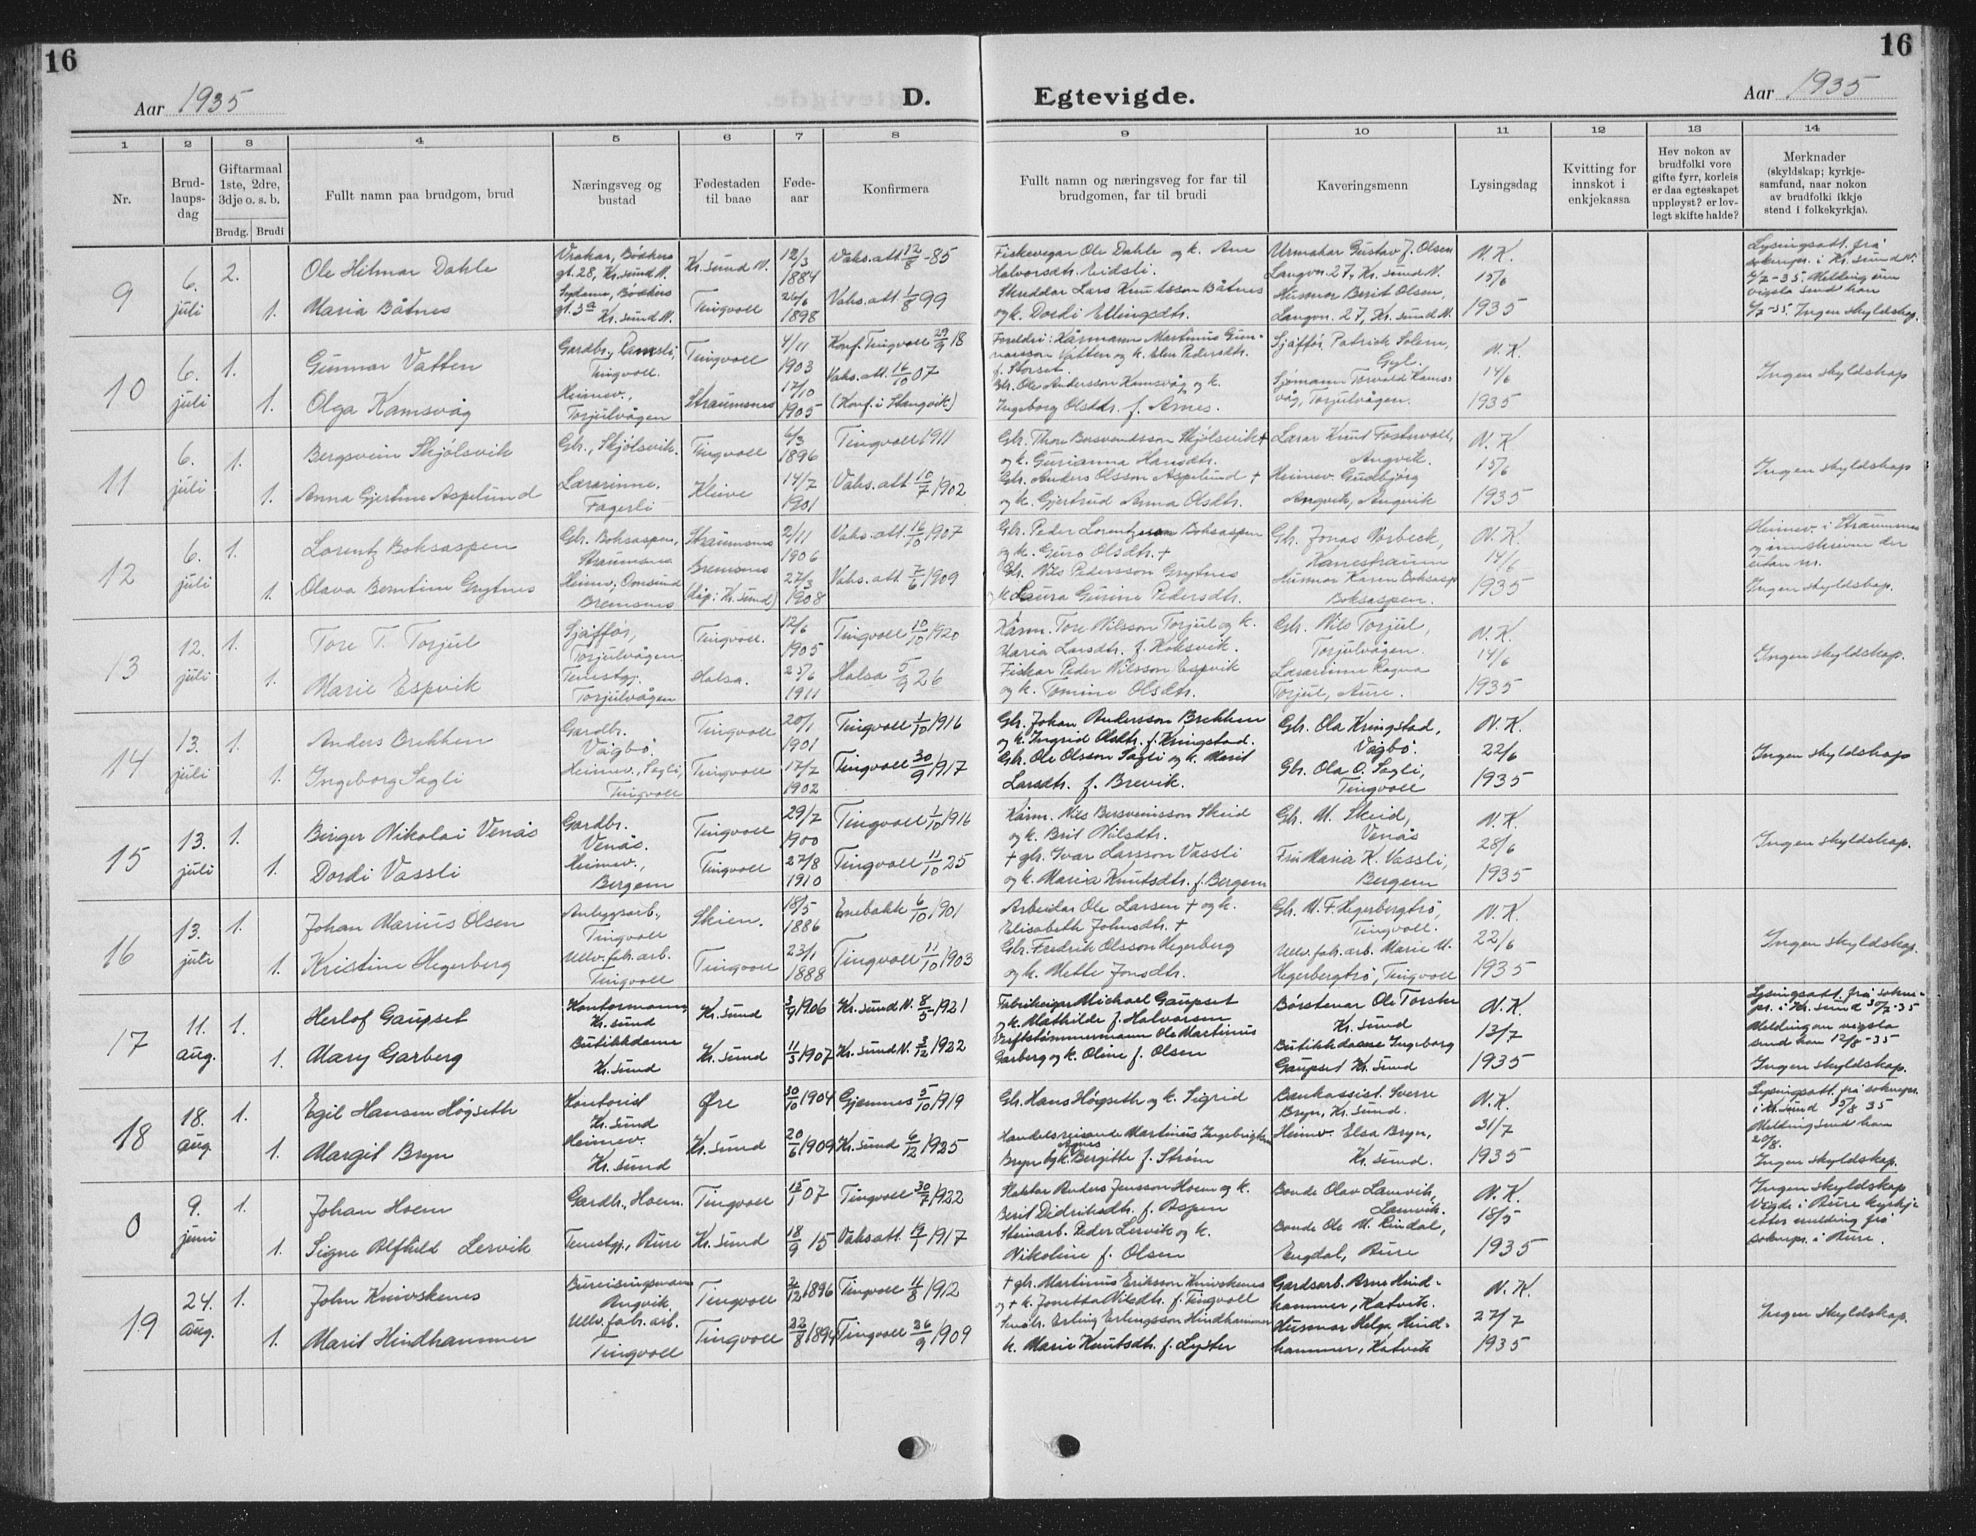 16
Aar 1935
D.
Egtevigde.
Aar 1935
16
1 2 3 4 5 6 7 8 9 10 11 12 13 14
Nr.
Brud-
laups-
dag
Giftarmaal
1ste, 2dre,
3dje o. s. b.
Brudg. Brudi
Fullt namn paa brudgom, brud
Næringsveg og
bustad
Fødestaden
til baae
Føde-
aar
Konfirmera
Fullt namn og næringsveg for far til
brudgomen, far til brudi
Kaveringsmenn
Lysingsdag
Kvitting for
innskot i
enkjekassa
Hev nokon av
brudfolki vore
gifte fyrr, korleis
er daa egteskapet
uppløyst? er lov-
legt skifte halde?
Merknader
(skyldskap; kyrkje-
samfund, naar nokon
av brudfolki ikkje
stend i folkekyrkja).
9
6.
juli
2.
1.
Ole Hitmar Dahle
Maria Båtnes
gt. 28, Kr. sund N.
Kr. sund N.
Kr. sund N.
Tingvoll
12/3
1884
26/6
1898
Vaks. att. 12/8-85
Vaks. att 1/8 99
Fiskevegar Ole Dahle og k. Ane
Halvorsdtr. Eidsli.
Skreddar Lars Knutsson Båtnes
og k. Dordi Ellingsdtr.
Urmakar Gustav J. Olsen
Langvn. 27, Kr. sund N.
Husmor Berit Olsen,
Langvn. 27, Kr. sund N.
N. K.
15/6
1935
Lysingsatt. frå
soknepr. i Kr. sund N.
4/7-35. Melding um
vigsla send han
Ingen skyldskap.
10
6.
juli
1.
1.
Gunnar Vatten
Olga Kamsvåg
Gardbr., Ramsli,
Tingvoll.
Heimev.,
Torjulvågen
Tingvoll
Straumsnes
4/11
1903
17/10
1905
Konf. Tingvoll 29/9 18
Vaks. att. 16/10 07
(Konf. i Stangvik)
Foreldri: Kårmann Martinus Gun-
narsson Vatten og k. Elen Pedersdtr.
f. Storset.
Gbr. Ole Andersson Kamsvåg og k.
Ingeborg Olsdtr. f. Arnes.
Sjåffør Patrick Solem,
Gyl.
Sjømann Torvald Kams-
våg, Torjulvågen.
N. K.
14/6
1935
Ingen skyldskap
11
6.
juli
1.
1.
Bergsvein Skjølsvik
Anna Gjertine Aspelund
Gbr., Skjølsvik.
Lærarinne.
Fagerli
Tingvoll
Kleive
6/3
1896
14/7
1901
Tingvoll 1911
Vaks. att 10/7 1902
Gbr. Thore Bersvendsson Skjølsvik +
og k. Gurianna Hansdtr.
Gbr. Anders Olsson Aspelund +
og k. Gjertrud Anna Olsdtr.
Lærar Knut Fostervoll,
Angvik.
Heimev. Gudbjørg
Angvik, Angvik
N. K.
15/6
1935
Ingen skyldskap
12
6.
juli
1.
1.
Lorentz Boksaspen
Olava Berntine Grytnes
Gbr. Boksaspen,
Straumsnes
Heimev., Omsund
Bremsnes
Straumsnes
Bremsnes
(døp. i Kr. sund)
2/11
1906
27/3
1908
Vaks. att. 16/10 1907
Vaks. att 7/6 1909
Gbr. Peder Lorentzson Boksaspen
og k. Guro Olsdtr. +
Gbr. Nils Pedersson Grytnes
k. Laura Gurine Pedersdtr.
Gbr. Jonas Vorbeck,
Kanestraum
Husmor Karen Boksasp
Boksaspen.
N. K.
14/6
1935
Heimev. i Straumsnes
og innskrivne der
utan nr.
Ingen skyldskap.
13
12.
juli
1.
1.
Tore T. Torjul
Marie Espvik
Sjåffør,
Torjulvågen
Tenestgj.
Torjulvågen
Tingvoll.
Halsa.
12/6
1905
25/6
1911
Tingvoll 10/10 1920
Halsa 5/9 26
Kårm. Tore Nilsson Torjul og k.
Maria Larsdtr. f. Koksvik.
Fiskar Peder Nilsson Espvik
og k. Tomine Olsdtr.
Gbr. Nils Torjul,
Torjulvågen.
Lærarinne Ragna
Torjul, Aure.
N. K.
14/6
1935
Ingen skyldskap.
14
13.
juli
1.
1.
Anders Brekken
Ingeborg Sagli
Gardbr.
Vågbø.
Heimev., Sagli,
Tingvoll
Tingvoll
Tingvoll
20/1
1901
17/7
1902
Tingvoll 1/10 1916
Tingvoll 30/9 1917
Gbr. Johan Andersson Brekken
og k. Ingrid Olsdtr. f. Kringstad.
Gbr. Ole Olsson Sagli og k. Marit
Larsdtr. f. Brevik.
Gbr. Ola Kringstad,
Vågbø.
Gbr. Ola O. Sagli,
Tingvoll
N. K.
22/6
1935
Ingen skyldskap
15
13.
juli
1.
1.
Birger Nikolai Venås
Dordi Vassli
Gardbr.
Venås.
Heimev.,
Bergem
Tingvoll
Tingvoll
29/7
1900
27/8
1910
Tingvoll 1/10 1916
Tingvoll 11/10 25
Kårm. Nils Bersveinsson Skeid
og k. Brit Nilsdtr.
+ gbr. Ivar Larsson Vassli
og k. Maria Knutsdtr. f. Bergem
Gbr. M. Skeid,
Venås
Fru Maria K. Vassli,
Bergem
N. K.
28/6
1935
Ingen skyldskap.
16
13.
juli
1.
1.
Johan Marius Olsen
Kristine Hegerberg
Anleggsarb.,
Tingvoll
Ullv. fabr. arb.
Tingvoll
Skien.
Tingvoll
18/5
1886
23/1
1888
Enebakk 6/10 1901
Tingvoll 11/10 1903
Arbeidar Ole Larsen + og k.
Elisabeth Johnsdtr. +
Gbr. Fredrik Olsson Hegerberg
og k. Mette Jonsdtr.
Gbr. M. F. Hegerbergtrø,
Tingvoll.
Ullv. fabr. arb. Marie M.
Hegerbergtrø, Tingvoll
N. K.
22/6
1935
Ingen skyldskap.
17
11.
aug.
1.
1.
Herlof Gaupset
Mary Garberg
Kontormann,
Kr. sund
Butikkdame
Kr. sund
Kr. sund
Kr. sund
3/9 1906
11/3 1907
Kr. sund N. 8/5 1921
Kr. sund N. 3/12 1922
Fabrikeigar Michael Gaupset
og k. Mathilde f. Halvorsen
Skiftstømmermann Ole Martinus
Garberg og k. Oline f. Olsen
Børstevar Ole Torster
Kr. sund
Butikkdame Ingeborg
Gaupset Kr. sund
N. K.
13/7
1935
Lysingsatt. frå sokne-
pr. i Kr. sund 30/7-35
Melding um vigsla
send han 12/8-35
Ingen skyldskap.
18
18.
aug
1.
1.
Egil Hansen Høgseth
Margit Bryn
Kontorist
Kr. sund
Heimev.
Kr. sund
Øre
Kr. sund
30/10 1904
20/6 1909
Gjemnes 5/10 1919
Kr. sund 6/12 1925
Gbr. Hans Høgseth og k. Sigrid
Handelsreisande Martinus Ingebrigtsen
Agnes
Bryn og k. Bergitte f. Strøm
Bankassist. Sverre
Bryn, Kr. sund.
Heimev. Elsa Bryn,
Kr. sund.
N. K.
31/7
1935
Lysingsatt. frå soknepr.
i Kr. sund 15/8 35
Melding send han
20/8.
Ingen skyldskap.
0
9.
juni
1.
1.
Johan Hoem
Signe Alfhild Lervik
Gardbr., Hoem.
Tenestgj., Aure
Tingvoll
Kr. sund
15/1 07
18/9 15
Tingvoll 30/7 1922
Vaks att. 19/1 1917
Anders Jensson Hoem og k.
Berit Didriksdtr. f. Aspen
Steinarb. Peder Lervik og k.
Nikoline f. Olsen
Bonde Olav Lamvik,
Lamvik.
Bonde Ole M. Rindal,
Engdal, Aure
N. K.
18/5
1935
Ingen skyldskap
Vigde i Aure kyrkje
etter melding frå
soknepr. i Aure.
19
24.
aug.
1.
1.
John Knivskenes
Marit Hindhammer
Bureisingsmann
Angvik
Ullv. fabr. arb.
Tingvoll
Tingvoll
Tingvoll
2/12 1896
22/8 1894
Tingvoll 11/8 1912
Tingvoll 26/9 1909
+ gbr. Martinus Eriksson Knivskenes
og + k. Jonetta Nilsdtr. f. Tingvoll
Småbr. Erling Erlingsson Hindhammer
k. Marie Knutsdtr. f. Lyster
Gardsarb. Arne Hind-
hammer, Katvik.
Husmor Helga Hind-
hammer, Katvik
N. K.
27/7
1935
Ingen skyldskap.